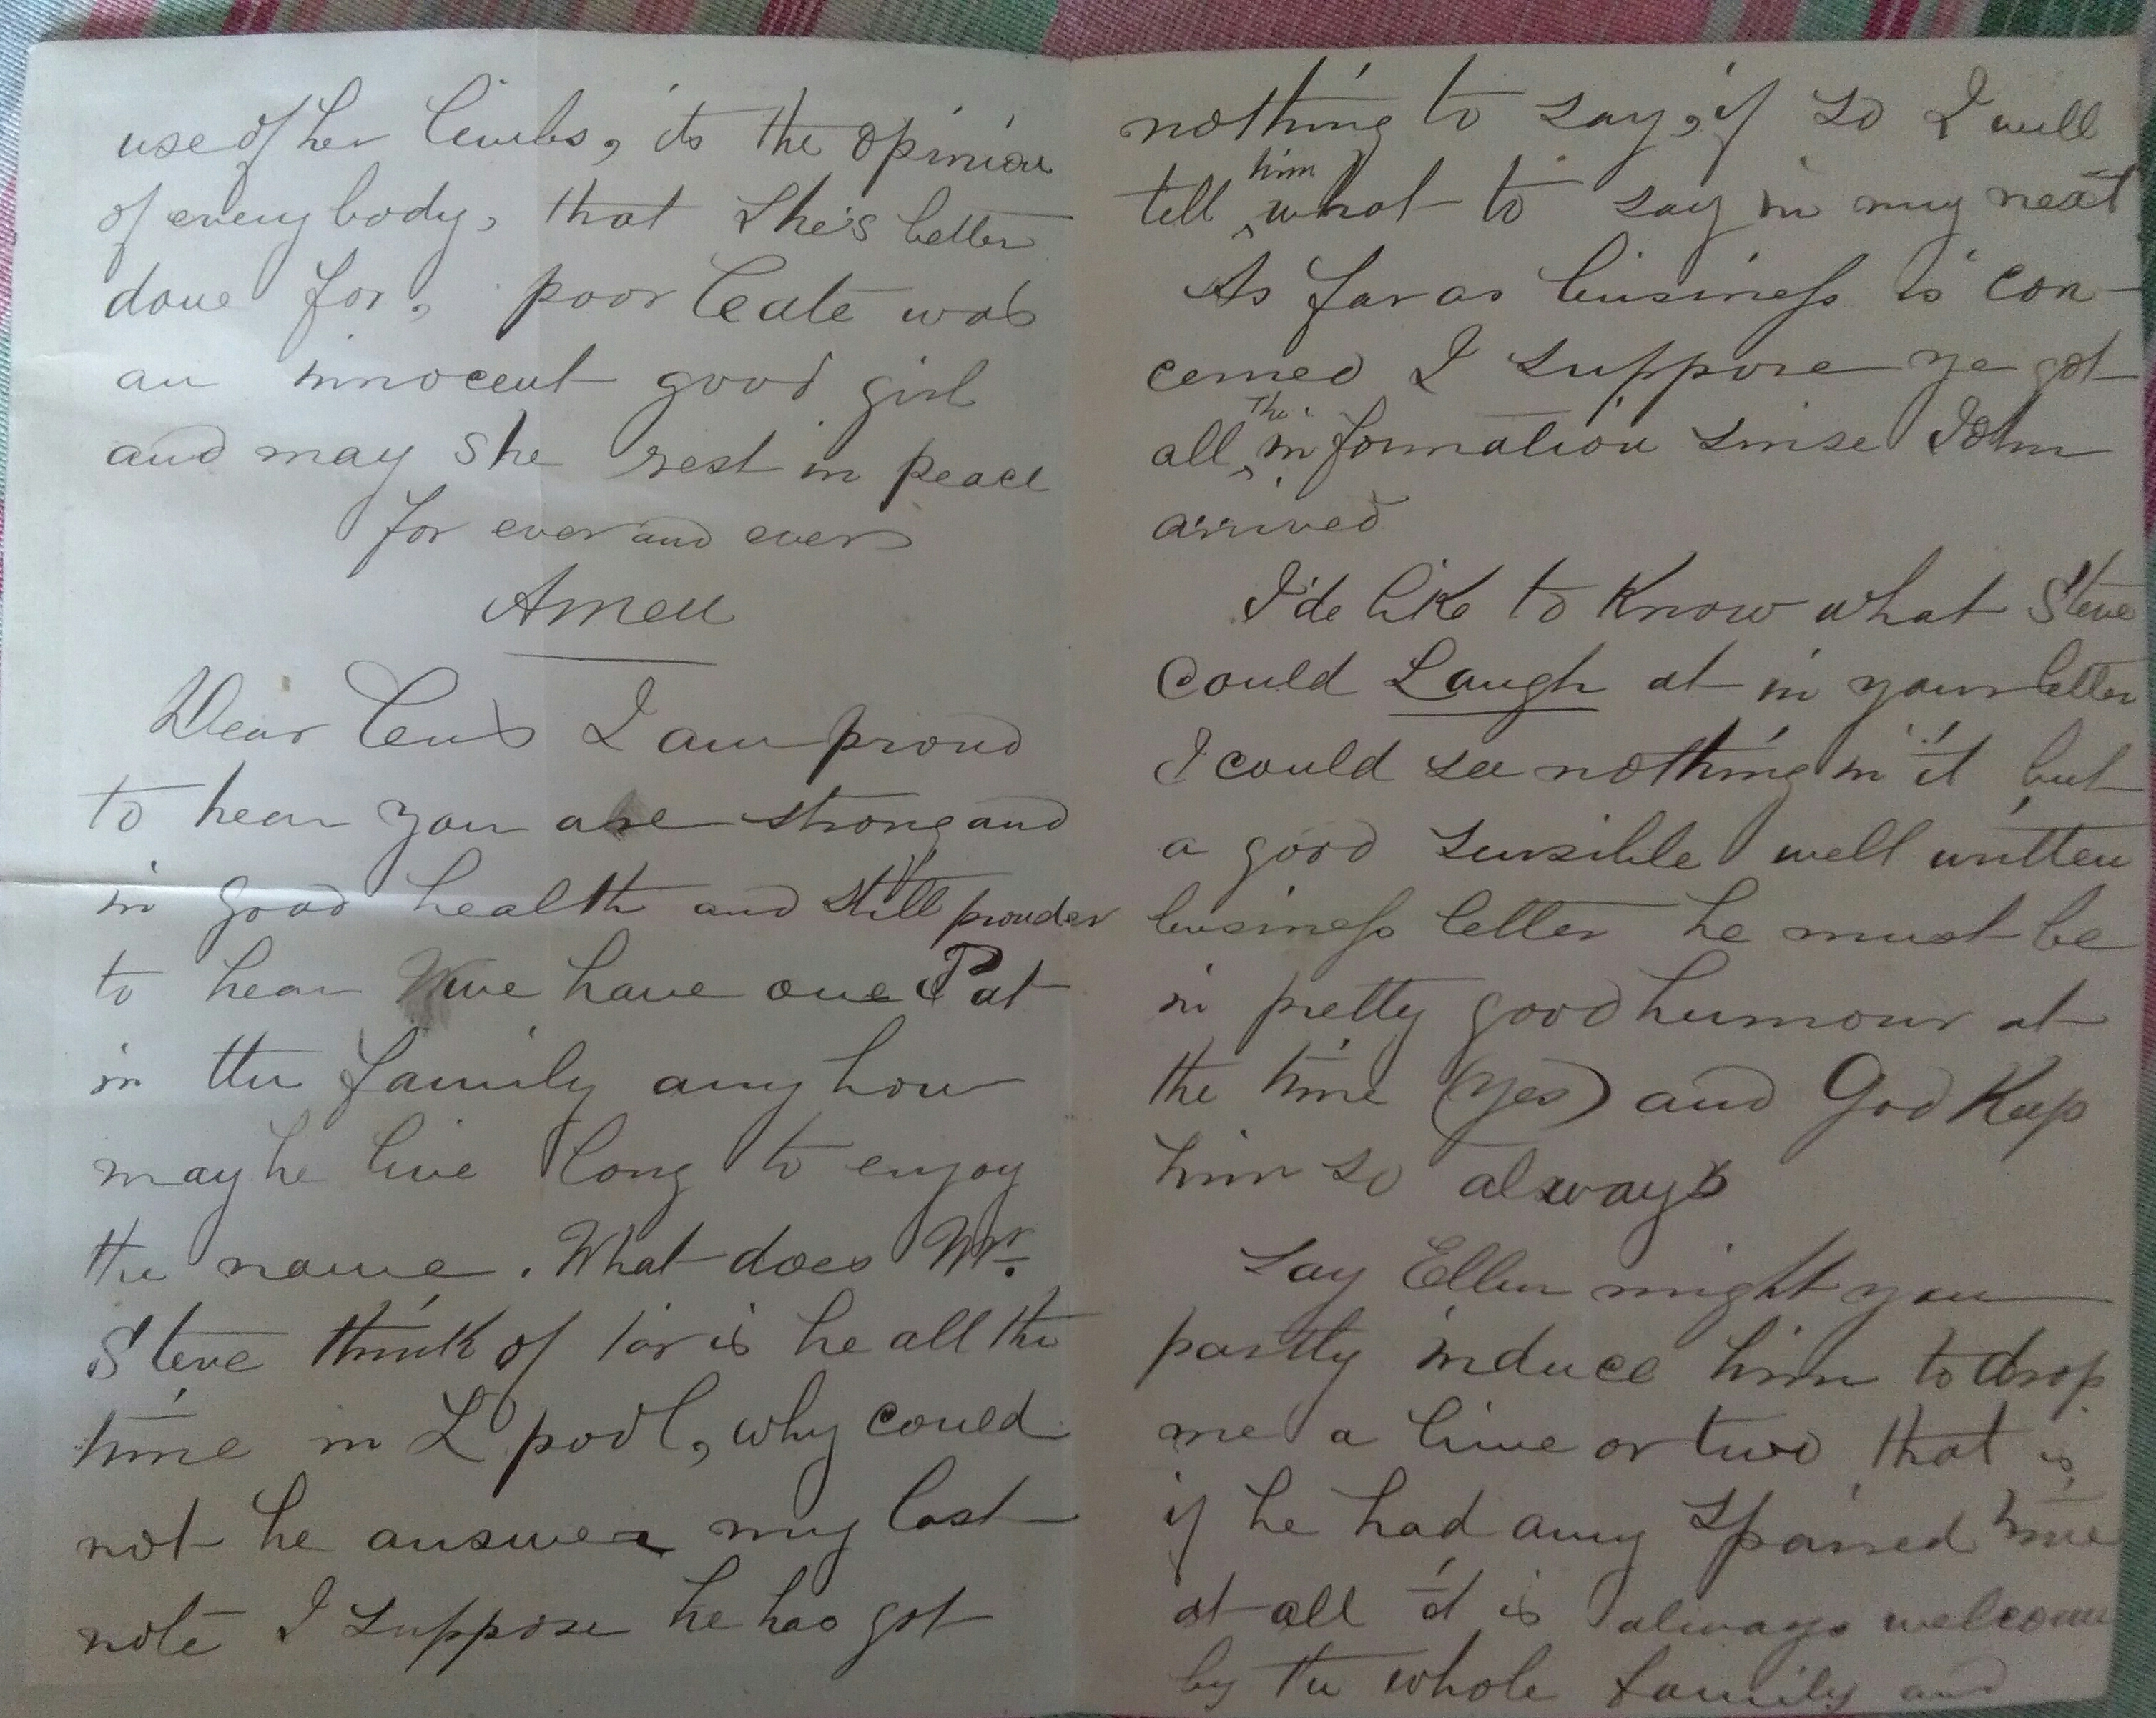 use of her limbs, its the opinion
of every body, that She's better
done for, poor Cate was
an innocent good girl
and may she rest in peace
for ever and ever
Amen
Dear I am proud
to hear you are strong and
in good health and still prouder
to hear we have one Pat
in the family any how
may he live long to enjoy
the name. What does Mr.
Steve think of or is he all the
time in L pool, why could
not he answer my last
note I suppose he has got
nothing to say, if so I will
tell him what to say in my next
As far as business is con-
cerned I suppose ye got
all the information sinse John
arrived
I'de like to Know what Steve
could Laugh at in your letter
I could see nothing in it but
a good sensible well written
business letter he must be
in pretty good humour at
the time (yes) and God Keep
him so always
Say Ellen might you
partly induce him to drop
me a line or two that is,
if he had any Spaired time
at all it is always welcome
by the whole family and